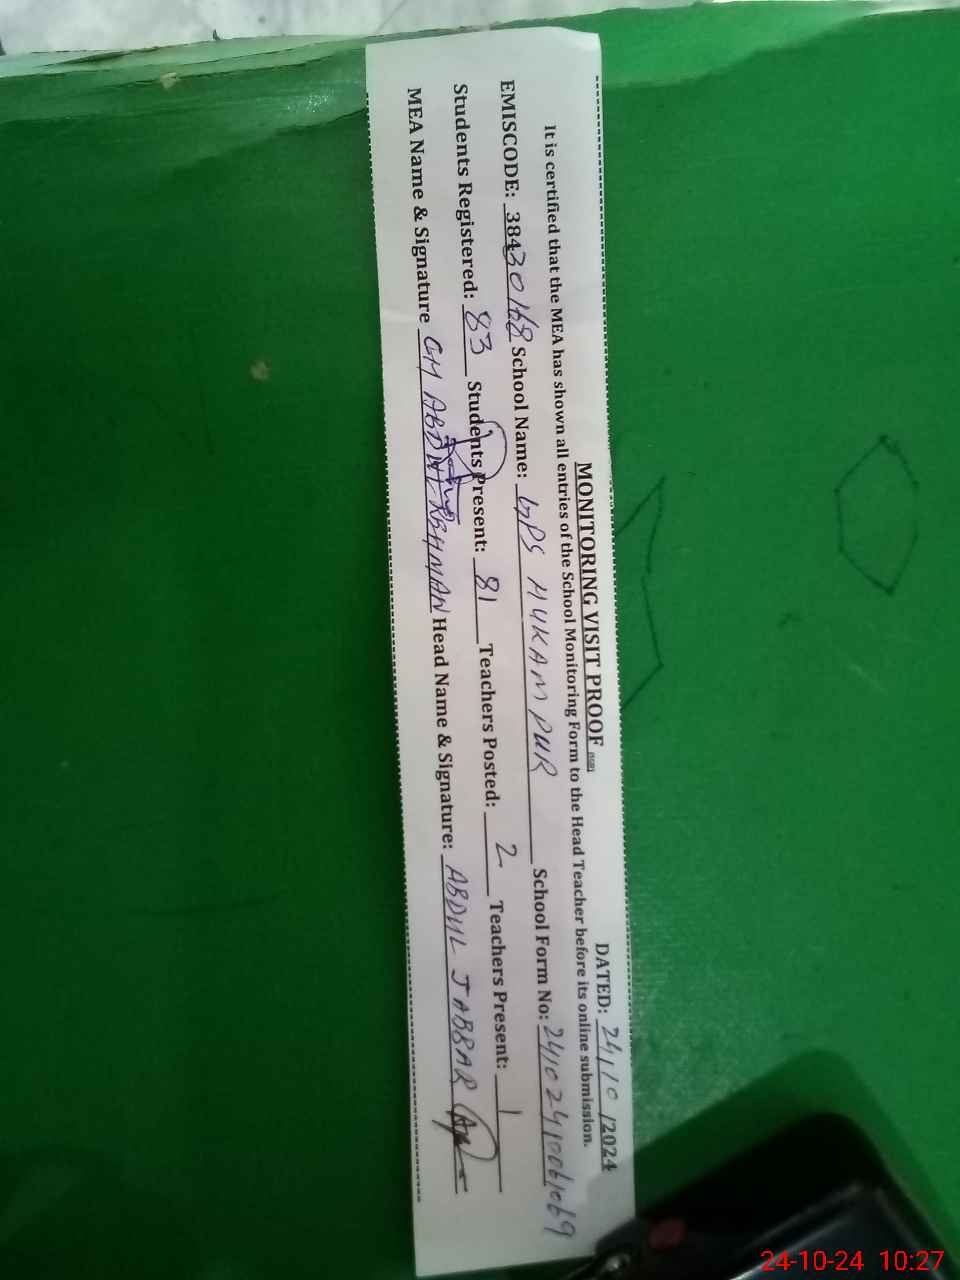 MONITORING VISIT PROOF
DATED: 24/10/2024
It is certified that the MEA has shown all entries of the School Monitoring Form to the Head Teacher before its online submission.
EMISCODE: 38430168 School Name: GPS MUKAMPUR School Form No: 24102410061069
Students Registered: 83 Students Present: 81 Teachers Posted: 2 Teachers Present: 1
MEA Name & Signature CH ABDUL REHMAN Head Name & Signature: ABDUL JABBAR
24-10-24 10:27